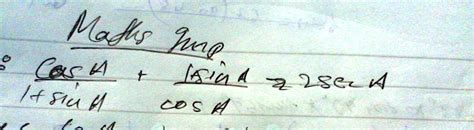 Maths Imp
Cos A / 1+sin A + 1+sin A / cos A = 2 sec A